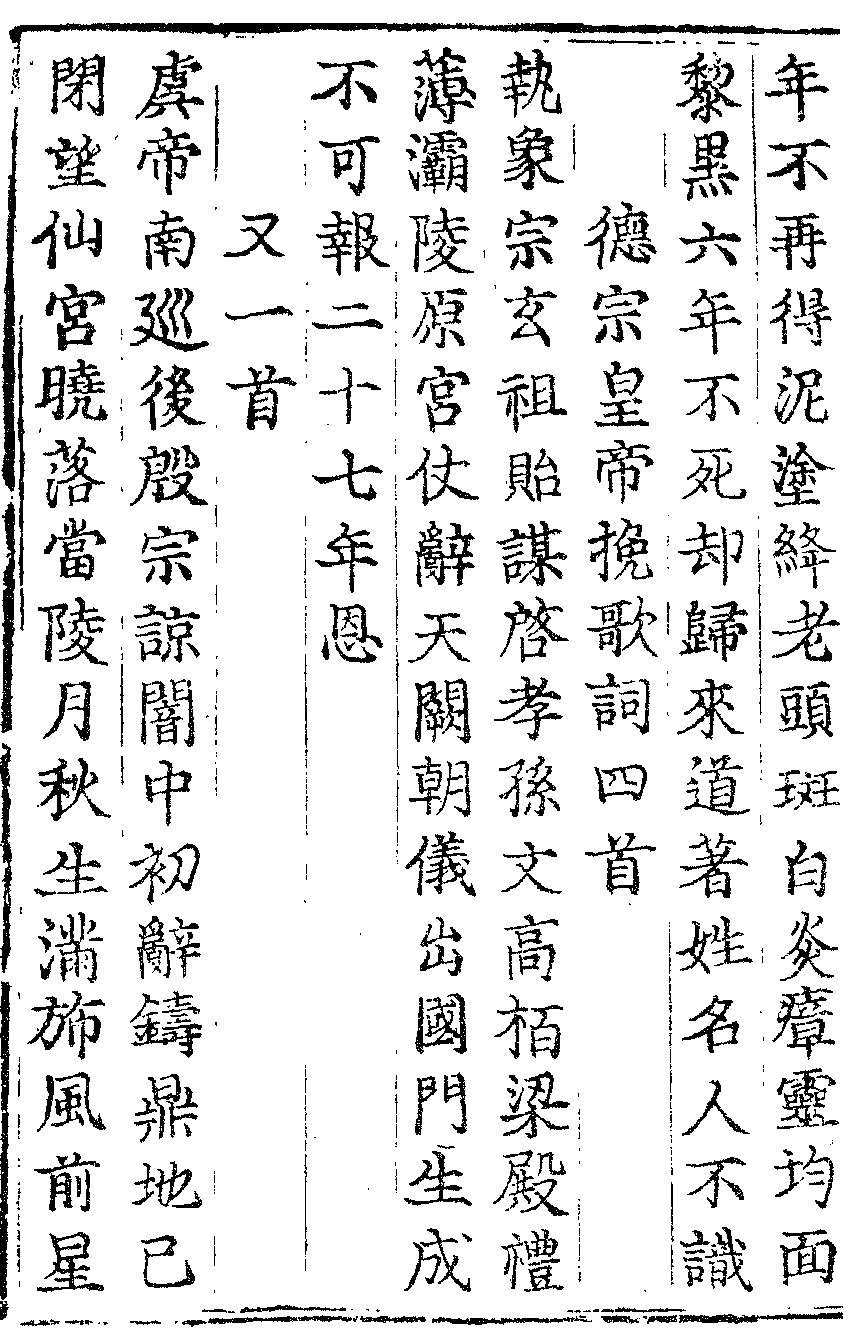 年不再得泥塗絳老頭斑白炎瘴靈均面
黎黒六年不死却歸來道著姓名人不識
德宗皇帝挽歌詞四首
執象宗玄祖貽謀啓孝孫文高栢梁殿禮
薄灞陵原宮仗辭天闕朝儀出國門生成
不可報二十七年恩
又一首
虞帝南廵後殷宗諒闇中初辭鑄鼎地已
閉望仙宮曉落當陵月秋生滿斾風前星